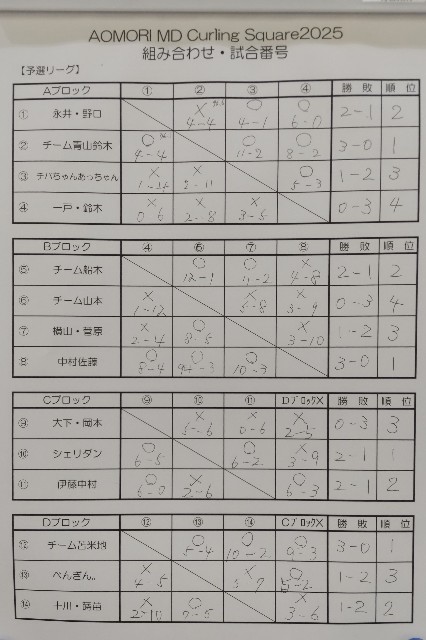 AOMORI MD Curling Square2025
組み合わせ・試合番号
【予選リーグ】
Aブロック ① ② ③ ④ 勝 敗 順 位
① 永井・野口 × 4-4 ○ 4-1 ○ 6-0 2-1 2
② チーム青山鈴木 ○ 4-4 ○ 11-2 ○ 8-2 3-0 1
③ チバちゃんあっちゃん × 1-4 × 2-11 ○ 5-3 1-2 3
④ 一戸・鈴木 × 0-6 × 2-8 × 3-5 0-3 4
Bブロック ④ ⑥ ⑦ ⑧ 勝 敗 順 位
⑤ チーム船木 ○ 12-1 ○ 4-2 × 4-8 2-1 2
⑥ チーム山本 × 1-12 × 5-8 × 3-9 0-3 4
⑦ 横山・菅原 × 2-4 ○ 8-5 × 3-10 1-2 3
⑧ 中村佐藤 ○ 8-4 ○ 9-3 ○ 10-3 3-0 1
Cブロック ⑨ ⑩ ⑪ DブロックX 勝 敗 順 位
⑨ 大下・岡本 × 5-6 × 0-6 × 2-5 0-3 3
⑩ シェリダン ○ 6-5 ○ 6-2 × 3-9 2-1 1
⑪ 伊藤中村 ○ 6-0 × 2-6 ○ 6-3 2-1 2
Dブロック ⑫ ⑬ ⑭ CブロックX 勝 敗 順 位
⑫ チーム苫米地 ○ 5-4 ○ 10-2 ○ 9-3 3-0 1
⑬ ぺんぎん。 × 4-5 × 5-7 ○ 5-2 1-2 3
⑭ 十川・蒔苗 × 2-10 ○ 7-5 × 3-6 1-2 2